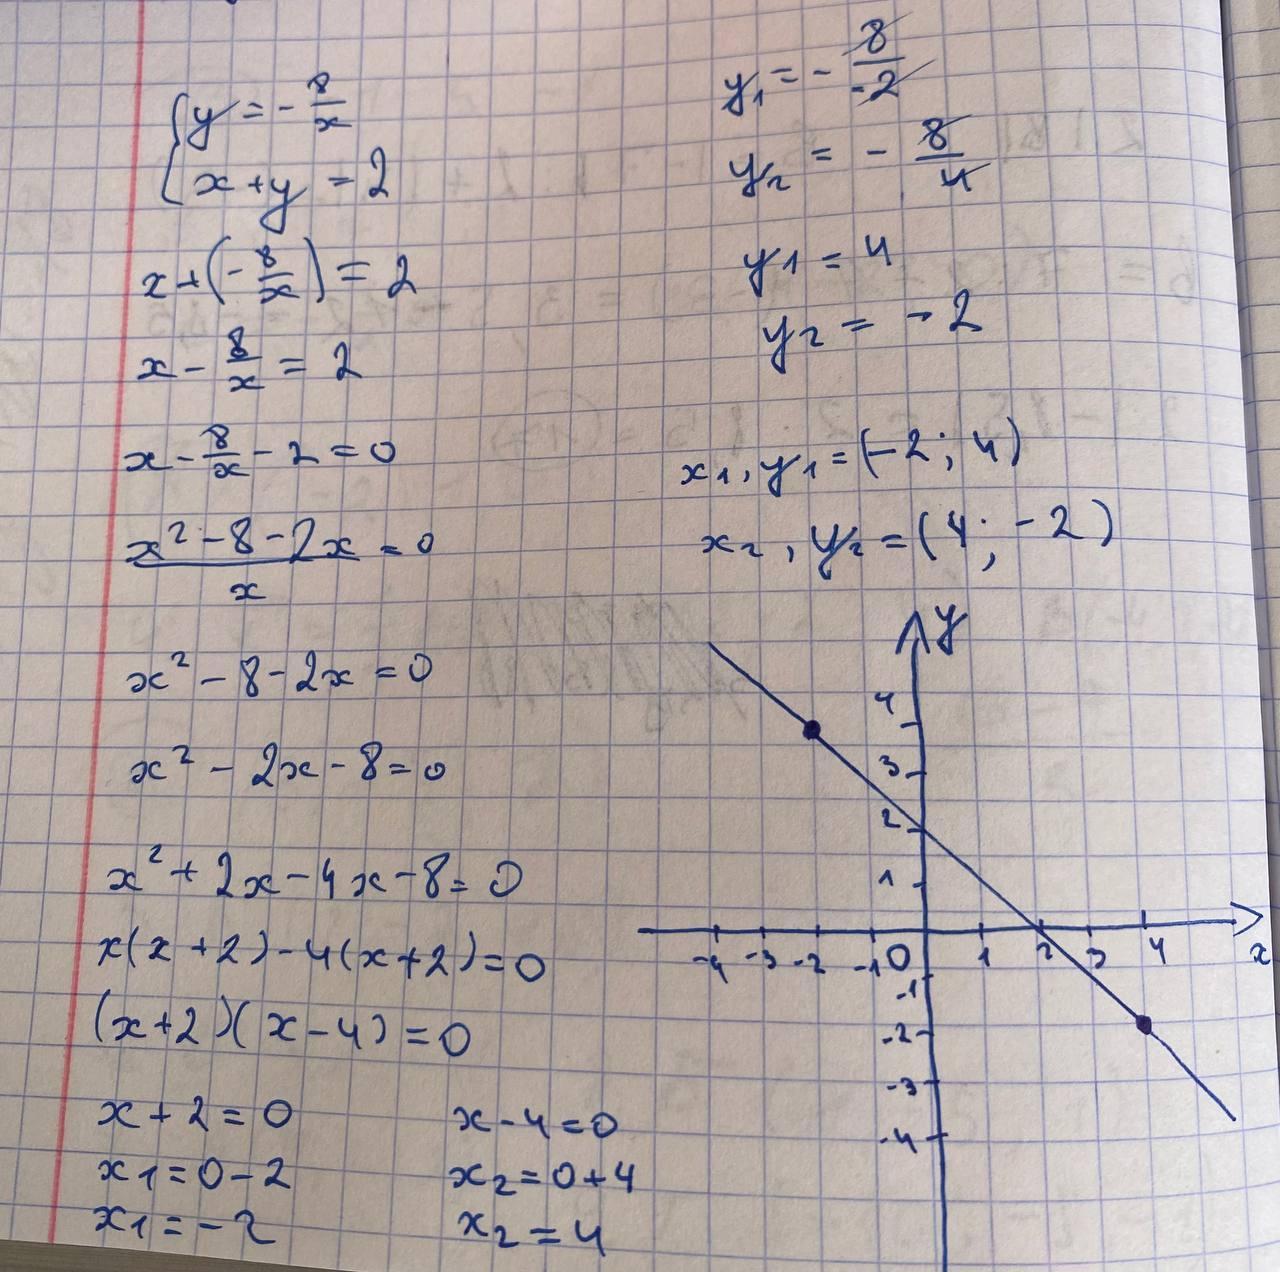 { y = - 8/x
x + y = 2
x + (- 8/x) = 2
x - 8/x = 2
x - 8/x - 2 = 0
(x² - 8 - 2x)/x = 0
x² - 8 - 2x = 0
x² - 2x - 8 = 0
x² + 2x - 4x - 8 = 0
x(x + 2) - 4(x + 2) = 0
(x + 2)(x - 4) = 0
x + 2 = 0
x₁ = 0 - 2
x₁ = - 2
x - 4 = 0
x₂ = 0 + 4
x₂ = 4
y₁ = - 8/-2
y₂ = - 8/4
y₁ = 4
y₂ = - 2
x₁, y₁ = (-2; 4)
x₂, y₂ = (4; -2)
y
4
3
2
1
-4 -3 -2 -1 0 1 2 3 4 x
-1
-2
-3
-4